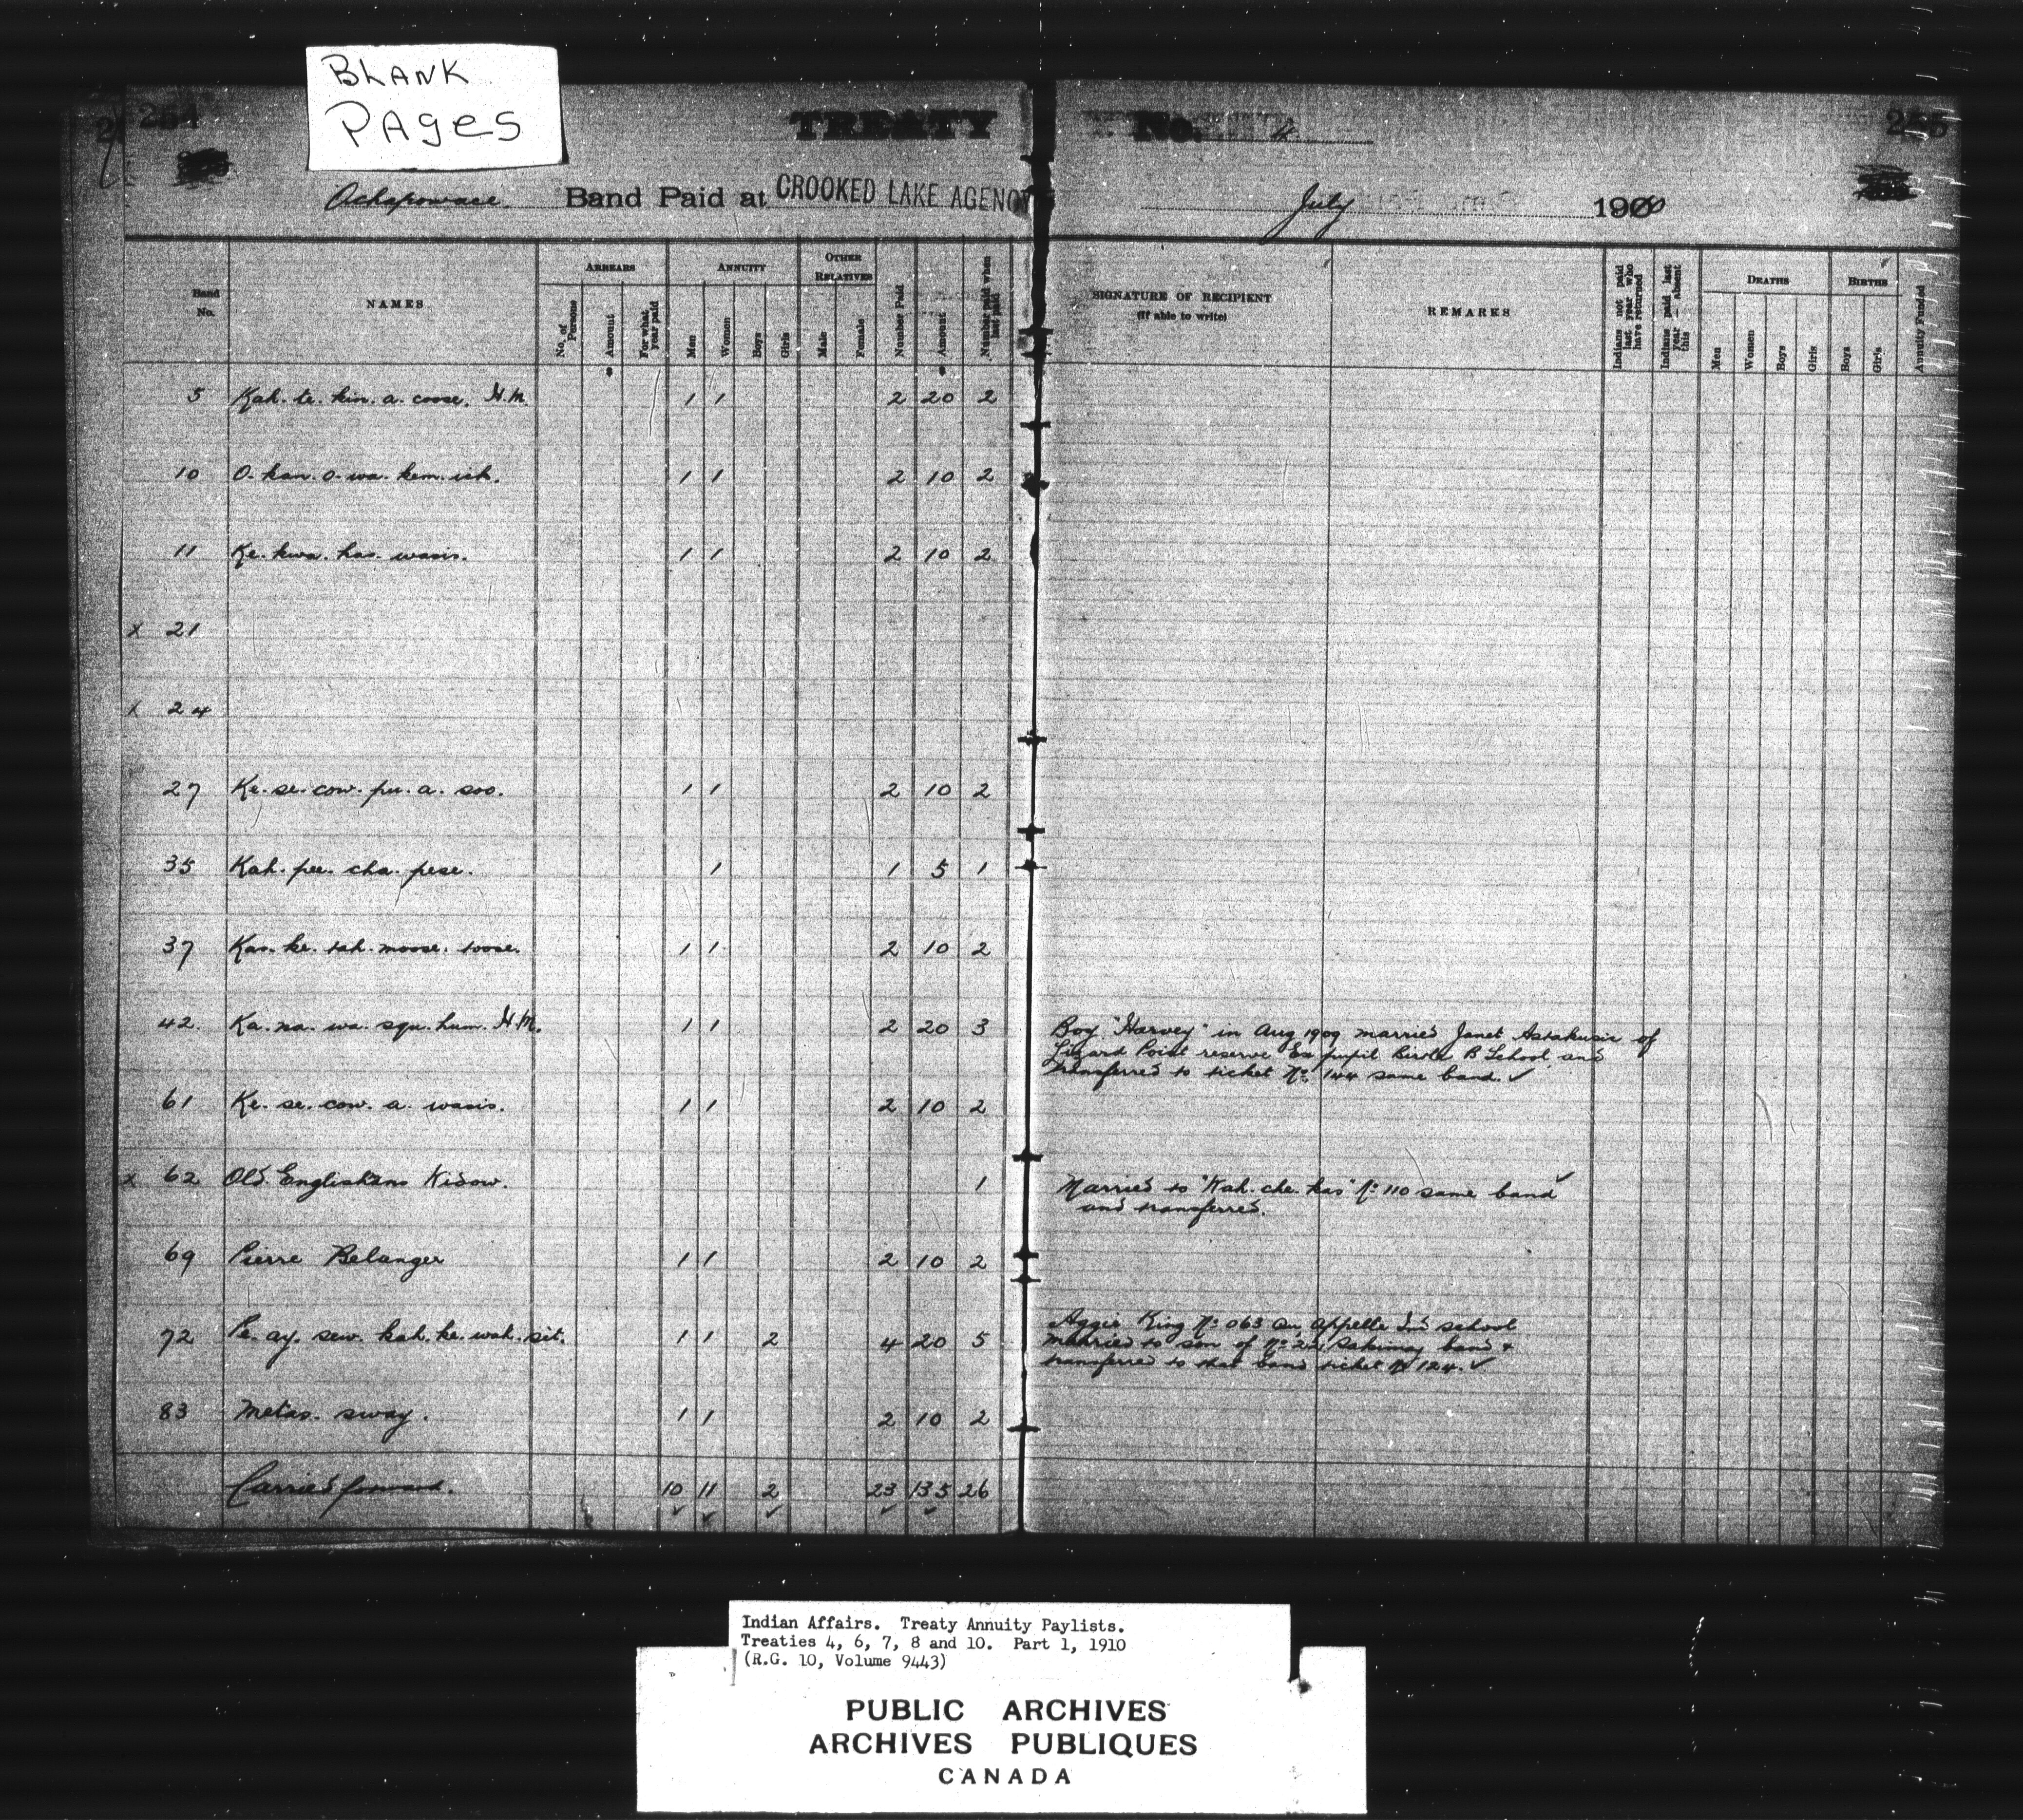 BLANK
PAGES
254
TREATY No. 4
255
Ochapowace Band Paid at CROOKED LAKE AGENCY July 1910
Band No. NAMES ARREARS ANNUITY OTHER RELATIVES Number Paid Amount Number paid when last paid SIGNATURE OF RECIPIENT (If able to write) REMARKS Indians not paid last year who have returned Indians paid last year — absent this DEATHS BIRTHS Annuity Funded
No. of Persons Amount For what year paid Men Women Boys Girls Male Female Men Women Boys Girls Boys Girls
5 Kah. te. kin. a. coose. H.M. 1 1 2 20 2
10 O. kan. o. wa. kem. ick. 1 1 2 10 2
11 Ke. kwa. has. wasis. 1 1 2 10 2
x 21
x 24
27 Ke. se. cow. pu. a. soo. 1 1 2 10 2
35 Kah. pee. cha. pese. 1 1 5 1
37 Kas. ke. tah. moose. toose. 1 1 2 10 2
42 Ka. na. wa. squ. hum. H.M. 1 1 2 20 3 Boy "Harvey" in Aug 1909 married Janet Astakusic of
Lizard Point reserve Ex pupil Birtle B School and
transferred to ticket No. 144 same band. ✓
61 Ke. se. cow. a. wasis. 1 1 2 10 2
x 62 Old Englishman's Widow. 1 Married to "Kah. che. kas" No. 110 same band ✓
and transferred.
69 Pierre Belanger 1 1 2 10 2
72 Pe. ay. sew. kah. ke. wah. sit. 1 1 2 4 20 5 Aggie King No. 063 Qu'Appelle Ind school
married to son of No. 22 Sakimay band &
transferred to that band ticket No 124. ✓
83 Metas. sway. 1 1 2 10 2
Carried forward. 10 11 2 23 135 26
Indian Affairs. Treaty Annuity Paylists.
Treaties 4, 6, 7, 8 and 10. Part 1, 1910
(R.G. 10, Volume 9443)
PUBLIC ARCHIVES
ARCHIVES PUBLIQUES
CANADA